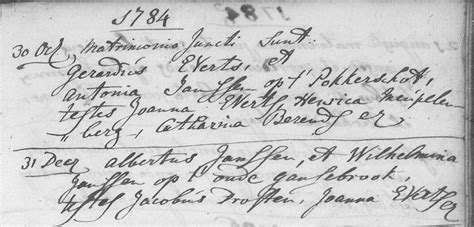 1784
30 Oct, Matrimonio Juncti Sunt
Gerardus Everts, et
antonia Janssen op t' Pokkerschot,
testes Joanna Everts Henrica Meipelen
berg, Catharina Berends
31 Decr albertus Janssen, et Wilhelmina
Janssen op t oude gansebrook,
testes Jacobus Drosten, Joanna Everts